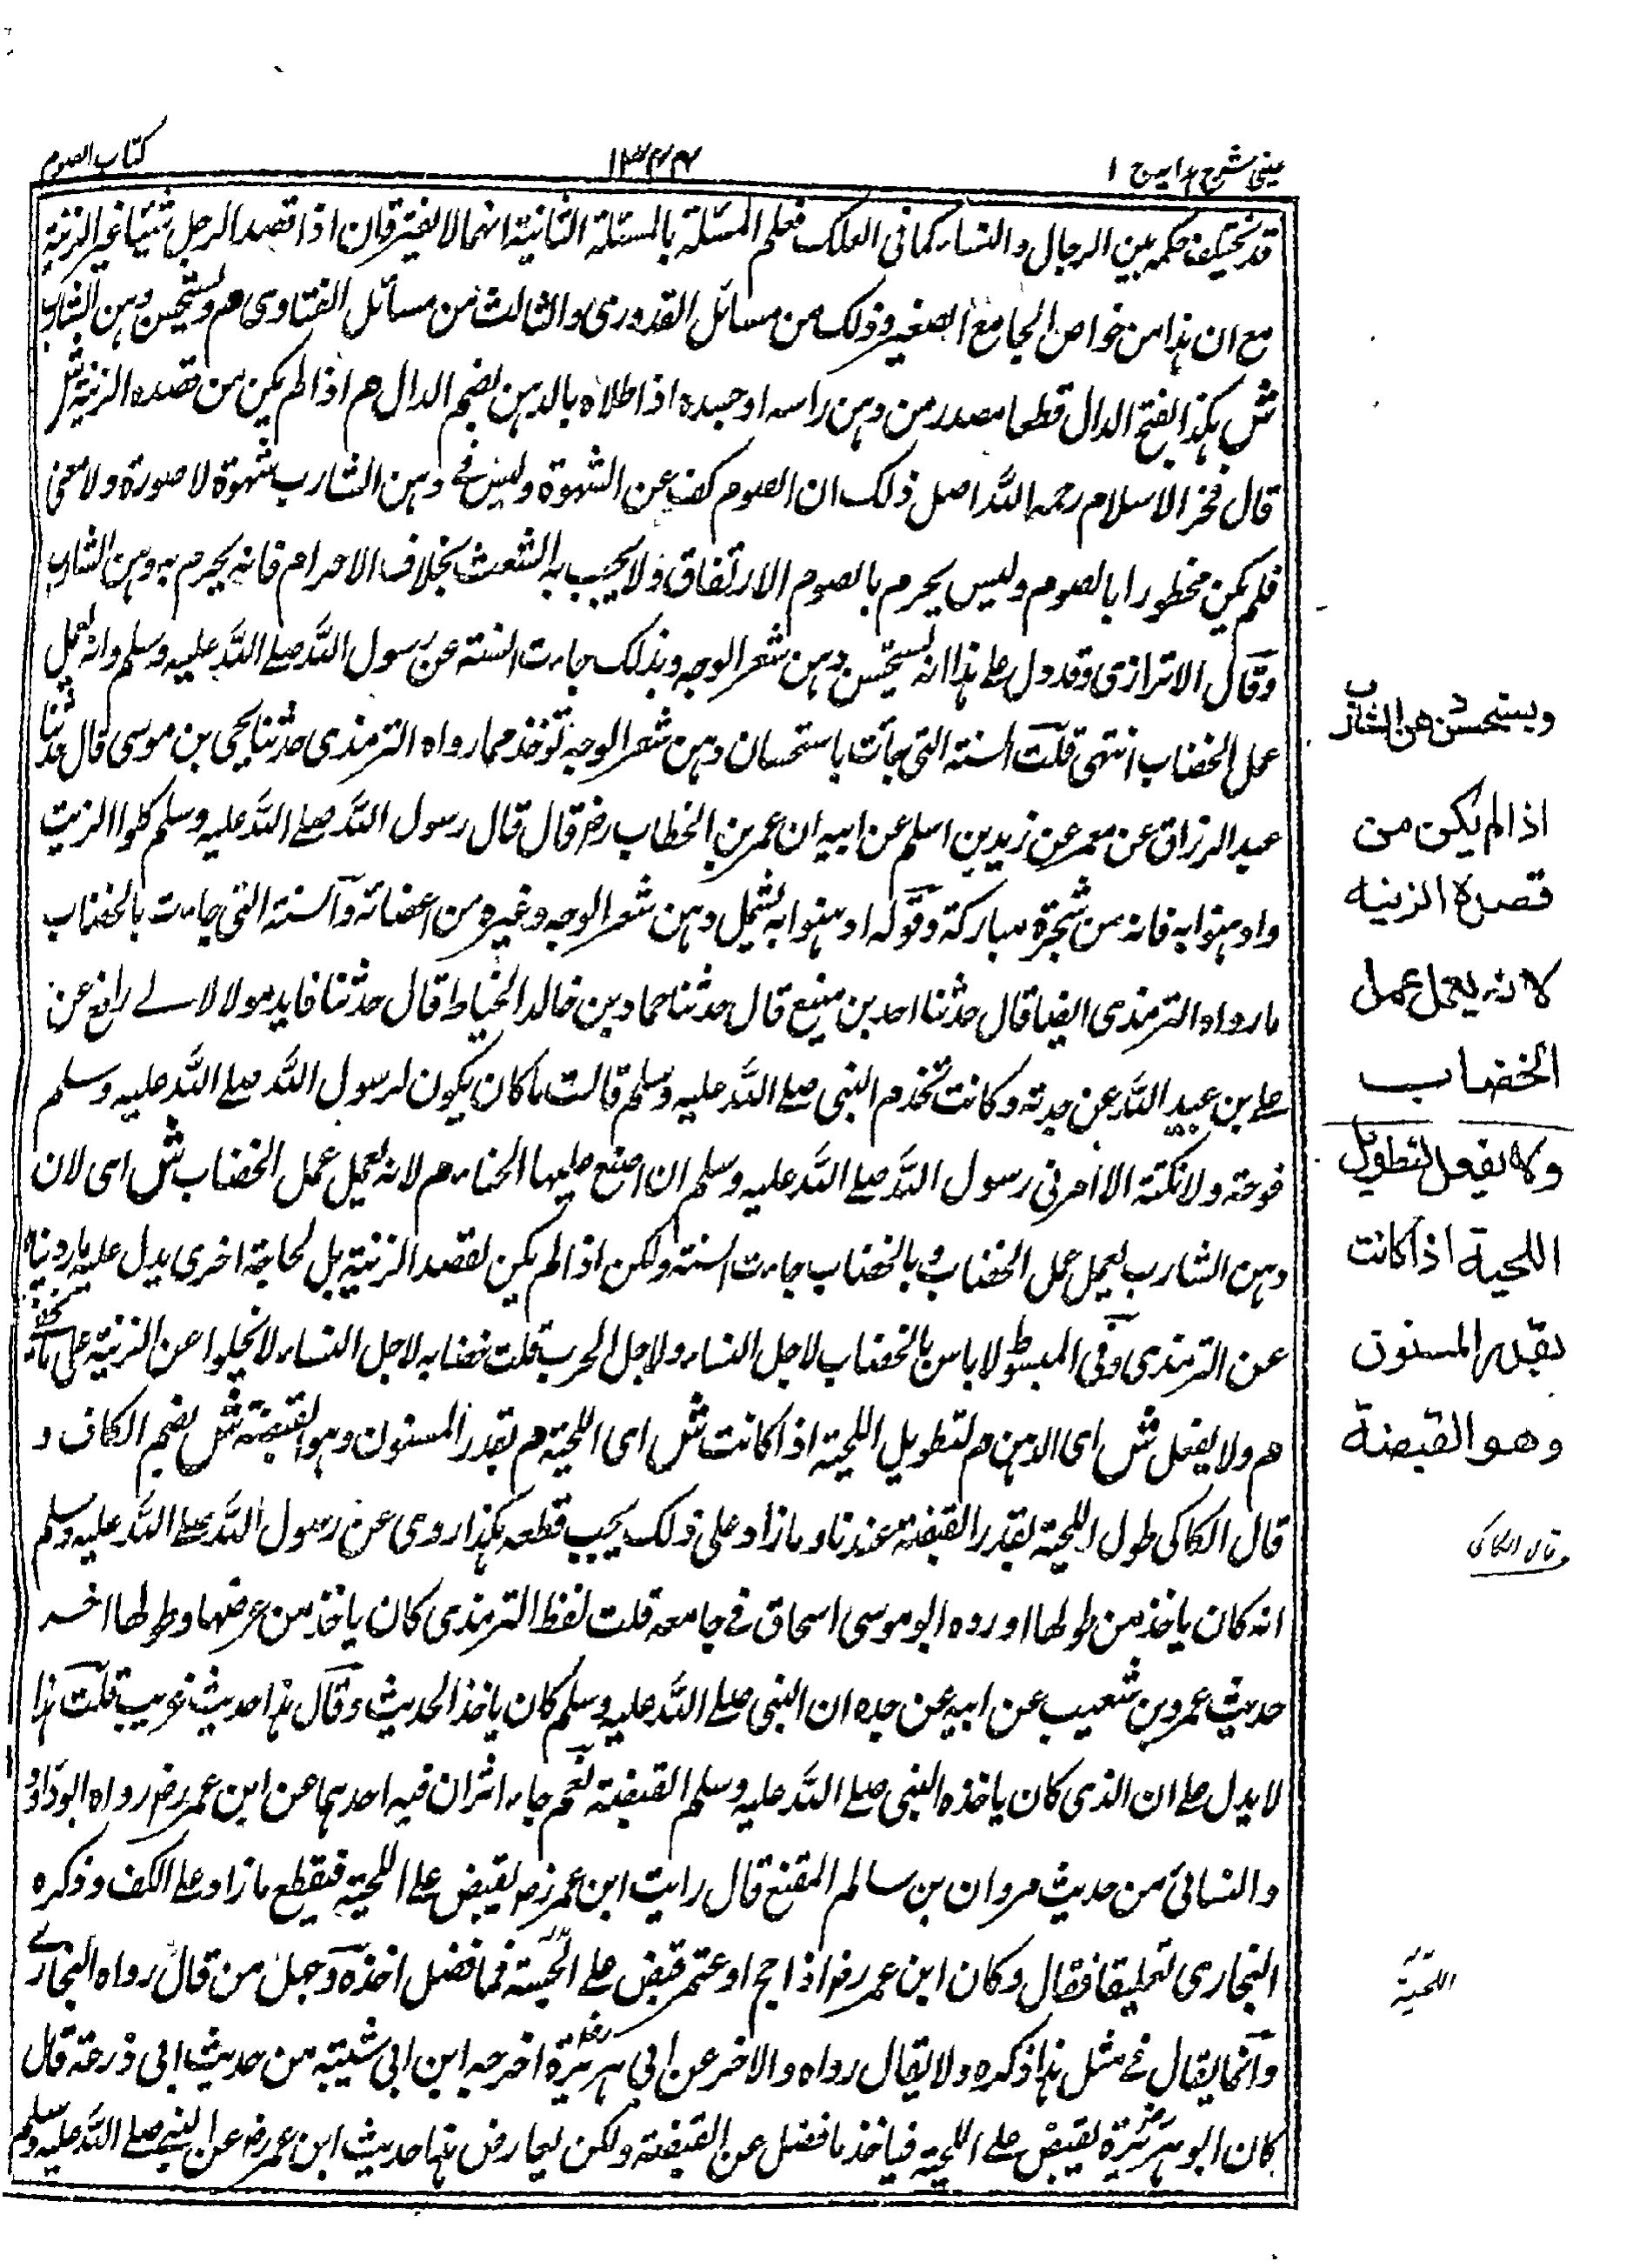 عینی شرح ہدایہ ج ۱
۱۳۴۴
کتاب الصوم
قد یختلف حکمہ بین الرجال والنساء کما فی العلک فعلم المسئلۃ بالمسئلۃ الثانیۃ انہما لا یفترقان اذا قصد الرجل شیئا غیر الزینۃ
مع ان ہذا من خواص الجامع الصغیر وذلک من مسائل القدوری والثالث من مسائل الفتاوی م ویستحسن دہن الشارب
ش ہکذا بفتح الدال قطعا مصدر من دہن راسہ او جسدہ اذا طلاہ بالدہن بضم الدال م اذا لم یکن من قصدہ الزینۃ ش
قال فخر الاسلام رحمہ اللہ اصل ذلک ان الصوم کف عن الشہوۃ ولیس فے دہن الشارب شہوۃ لا صورۃ ولا معنی
فلم یکن محظورا بالصوم ولیس یحرم بالصوم الارتفاق ولا یجب بہ الشعث بخلاف الاحرام فانہ یحرم بہ دہن الشارب
وقال الاترازی وقد دل علے ہذا انہ یستحسن دہن شعر الوجہ وبذلک جاءت السنۃ عن رسول اللہ صلے اللہ علیہ وسلم وانہ یعمل
عمل الخضاب انتہی قلت السنۃ التی جاءت باستحسان دہن شعر الوجہ تؤخذ مما رواہ الترمذی حدثنا یحیی بن موسی قال حدثنا
عبد الرزاق عن معمر عن زید بن اسلم عن ابیہ ان عمر بن الخطاب رضہ قال قال رسول اللہ صلے اللہ علیہ وسلم کلوا الزیت
وادہنوا بہ فانہ من شجرۃ مبارکۃ وقولہ ادہنوا بہ یشمل دہن شعر الوجہ وغیرہ من اعضائہ والسنۃ التی جاءت بالخضاب
ما رواہ الترمذی ایضا قال حدثنا احمد بن منیع قال حدثنا حماد بن خالد الخیاط قال حدثنا فاید مولا لاے رافع عن
علے بن عبید اللہ عن جدتہ وکانت تخدم النبی صلے اللہ علیہ وسلم قالت ما کان یکون لرسول اللہ صلے اللہ علیہ وسلم
قرحۃ ولا نکتۃ الا امرنی رسول اللہ صلے اللہ علیہ وسلم ان اصنع علیہا الحناء م لانہ یعمل عمل الخضاب ش ای لان
دہن الشارب یعمل عمل الخضاب وبالخضاب جاءت السنۃ ولکن اذا لم یکن لقصد الزینۃ بل لحاجۃ اخری یدل علیہ ما روینا
عن الترمذی وفی المبسوط لا باس بالخضاب لاجل النساء ولاجل الحرب قلت خضابہ لاجل النساء لا یخلوا عن الزینۃ علی
م ولا یفعل ش ای الدہن م لتطویل اللحیۃ اذا کانت ش ای اللحیۃ م بقدر المسنون وہو القبضۃ ش بضم الکاف و
قال الکاکی طول اللحیۃ بقدر القبضۃ عندنا وما زاد علی ذلک یجب قطعہ ہکذا روی عن رسول اللہ صلے اللہ علیہ وسلم
انہ کان یاخذ من طولہا اوردہ ابو موسی اسحاق فے جامعہ قلت لفظ الترمذی کان یاخذ من عرضہا وطولہا اخر
حدیث عمرو بن شعیب عن ابیہ عن جدہ ان النبی صلے اللہ علیہ وسلم کان یاخذ الحدیث وقال ہذا حدیث غریب قلت ہذا
لا یدل علے ان الذی کان یاخذہ النبی صلے اللہ علیہ وسلم القبضۃ نعم جاء اثران فیہ احدہما عن ابن عمر رضہ رواہ ابو داؤد
والنسائی من حدیث مروان بن سالم المقنع قال رایت ابن عمر رضہ یقبض علے اللحیۃ فیقطع ما زاد علے الکف وذکرہ
البخاری تعلیقا فقال وکان ابن عمر رضہ اذا حج او عتمر قبض علے الحیتہ فما فضل اخذہ وجہل من قال رواہ البخارے
وانما یقال فے مثل ہذا ذکرہ ولا یقال رواہ والاخر عن ابی ہریرۃ رضہ اخرجہ ابن ابی شیبۃ من حدیث ابی زرعۃ قال
کان ابو ہریرۃ یقبض علے اللحیۃ فیاخذ ما فضل عن القبضۃ ولکن یعارض ہذا حدیث ابن عمر رضہ عن النبی صلے اللہ علیہ وسلم
ویستحسن دھن الشارب
اذا لم یکن من
قصدہ الزینۃ
لانہ یعمل عمل
الخضاب
ولا یفعل لتطویل
اللحیۃ اذا کانت
بقدر المسنون
وھو القبضۃ
وقال الکاکی
اللحیۃ